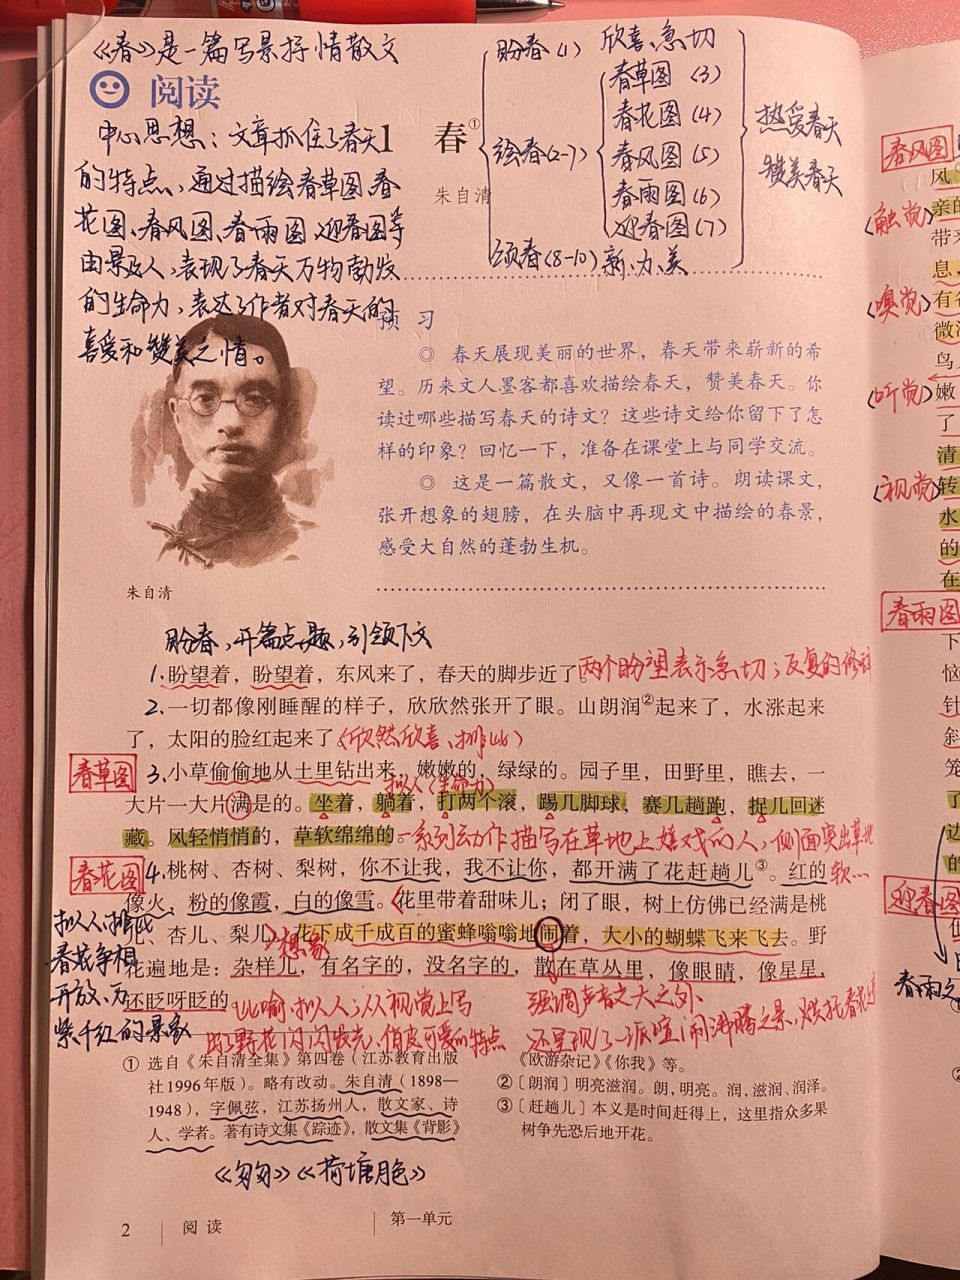 《春》是一篇写景抒情散文
阅读
中心思想：文章抓住了春天
的特点，通过描绘春草图、春
花图、春风图、春雨图、迎春图等
由景及人，表现了春天万物勃发
的生命力，表达了作者对春天的
喜爱和赞美之情。
1 春①
朱自清
盼春(1) 欣喜、急切
绘春(2-7)
春草图(3)
春花图(4)
春风图(5)
春雨图(6)
迎春图(7)
颂春(8-10) 新、力、美
热爱春天
赞美春天
预 习
◎ 春天展现美丽的世界，春天带来崭新的希
望。历来文人墨客都喜欢描绘春天，赞美春天。你
读过哪些描写春天的诗文？这些诗文给你留下了怎
样的印象？回忆一下，准备在课堂上与同学交流。
◎ 这是一篇散文，又像一首诗。朗读课文，
张开想象的翅膀，在头脑中再现文中描绘的春景，
感受大自然的蓬勃生机。
朱自清
盼春，开篇点题，引领下文
1.盼望着，盼望着，东风来了，春天的脚步近了。
两个盼望表示急切；反复的修辞
2.一切都像刚睡醒的样子，欣欣然张开了眼。山朗润②起来了，水涨起来
了，太阳的脸红起来了
(欣然欣喜、排比)
春草图
3.小草偷偷地从土里钻出来，嫩嫩的，绿绿的。园子里，田野里，瞧去，一
拟人(生命力)
大片一大片满是的。坐着，躺着，打两个滚，踢几脚球，赛几趟跑，捉几回迷
藏。风轻悄悄的，草软绵绵的
一系列动作描写在草地上嬉戏的人，侧面突出草地
软…
春花图
4.桃树、杏树、梨树，你不让我，我不让你，都开满了花赶趟儿③。红的
像火，粉的像霞，白的像雪。花里带着甜味儿；闭了眼，树上仿佛已经满是桃
儿、杏儿、梨儿
想象
花下成千成百的蜜蜂嗡嗡地闹着，大小的蝴蝶飞来飞去。野
花遍地是：杂样儿，有名字的，没名字的，散在草丛里，像眼睛，像星星，
还眨呀眨的
拟人、排比
春花争相
开放、万
紫千红的景象
比喻、拟人；从视觉上写
出了野花闪闪发光、俏皮可爱的特点
强调声音之大之外、
还呈现了一派喧闹沸腾之景，烘托春花
① 选自《朱自清全集》第四卷（江苏教育出版
社1996年版）。略有改动。朱自清（1898—
1948），字佩弦，江苏扬州人，散文家、诗
人、学者。著有诗文集《踪迹》，散文集《背影》
《欧游杂记》《你我》等。
② 〔朗润〕明亮滋润。朗，明亮。润，滋润、润泽。
③ 〔赶趟儿〕本义是时间赶得上，这里指众多果
树争先恐后地开花。
《匆匆》《荷塘月色》
2 阅读 第一单元
春风图
风
(触觉)亲的
带来
息，
(嗅觉)有名
微润
鸟
(听觉)嫩
了
清
(视觉)转
水
的
在
春雨图
下
恼
针
斜
笼
了
边
的
迎春图
春雨之